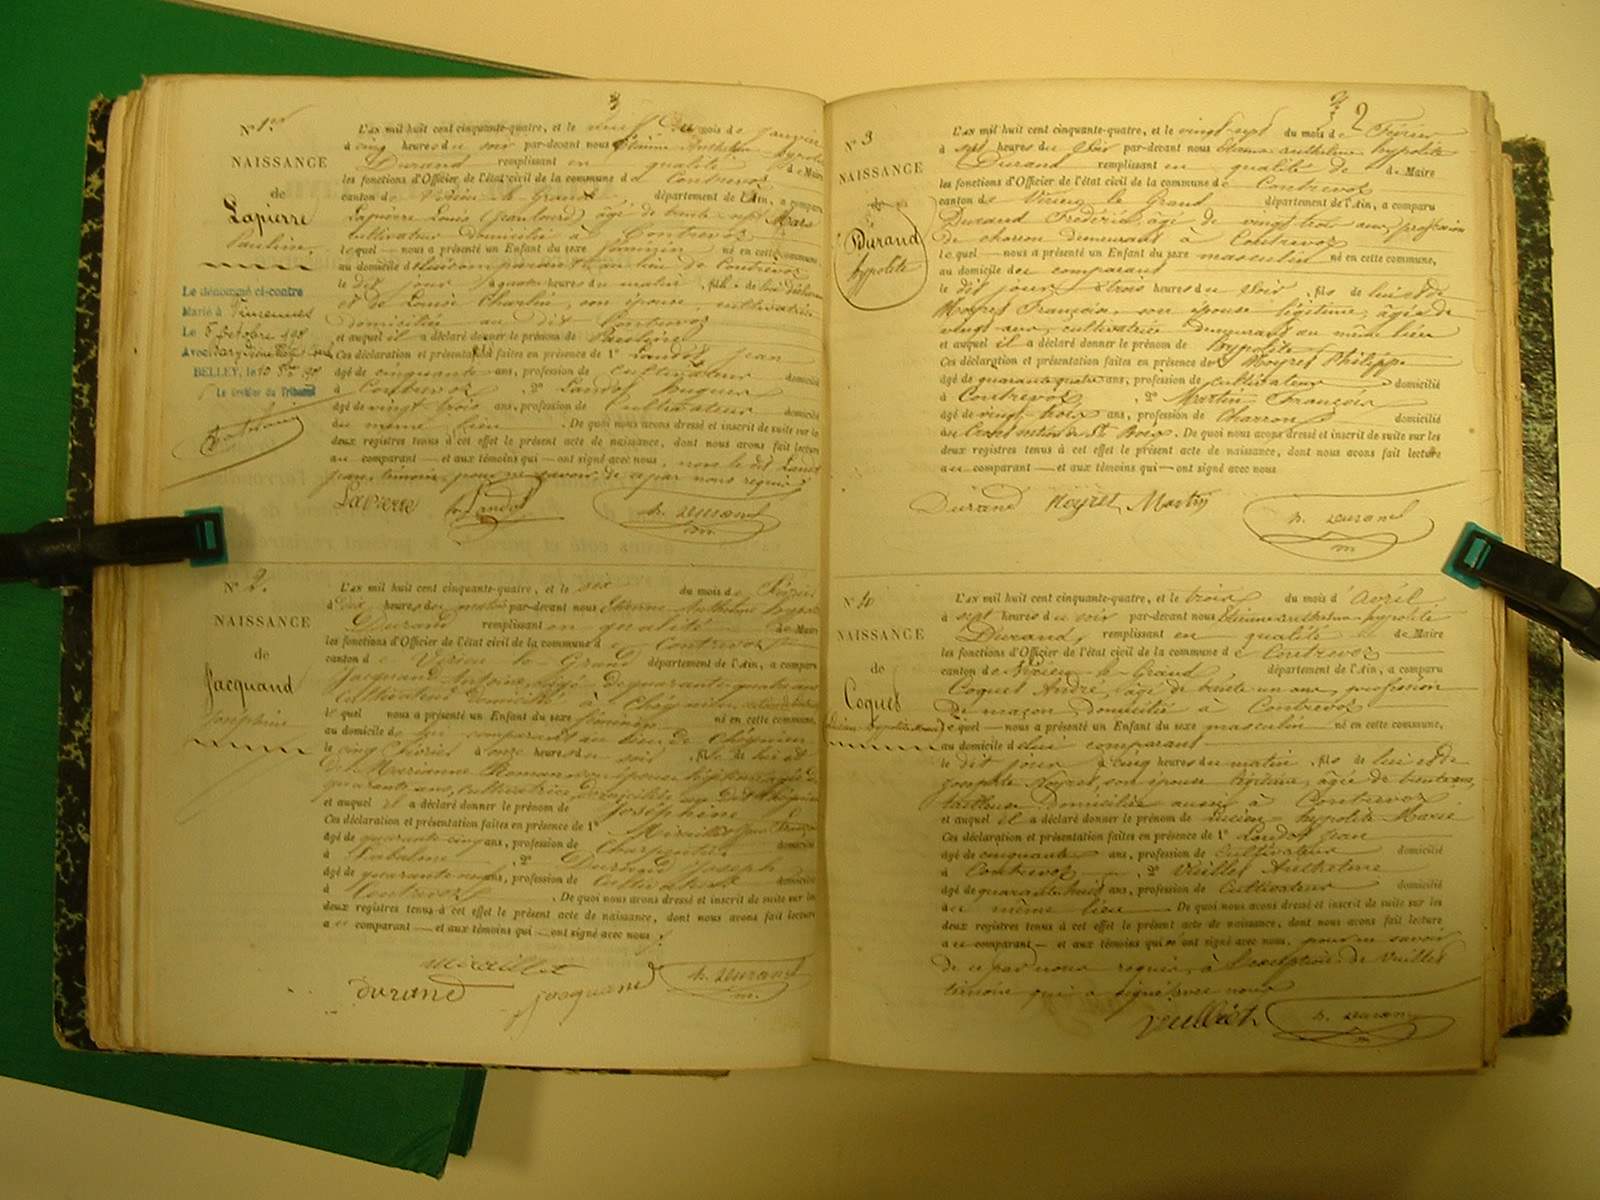 N° 1er
NAISSANCE
de
Lapierre
Pauline
Le dénommé ci-contre
Marié à Vincennes
Le 5 octobre
Avec
BELLEY, le 10
Le Greffier du Tribunal
L'AN mil huit cent cinquante-quatre, et le neuf du mois de Janvier
à cinq heures du soir par-devant nous Etienne Anthelme hypolite
Durand remplissant en qualité de Maire
les fonctions d'Officier de l'état civil de la commune de Contrevoz
canton de Virieu-le-Grand département de l'Ain, a comparu
Lapierre Louis âgé de trente sept ans
cultivateur domicilié à Contrevoz
lequel nous a présenté un Enfant du sexe féminin né en cette commune,
au domicile de lui comparant au lieu de Contrevoz
le dit jour à quatre heures du matin, fille de lui déclarant
et de Louise Charlin, son épouse, cultivatrice
domiciliée au dit Contrevoz
et auquel il a déclaré donner le prénom de Pauline
Ces déclaration et présentation faites en présence de 1° Landos Jean
âgé de cinquante ans, profession de cultivateur domicilié
à Contrevoz, 2° Landos hugues
âgé de vingt trois ans, profession de Cultivateur domicilié
du même lieu. De quoi nous avons dressé et inscrit de suite sur les
deux registres tenus à cet effet le présent acte de naissance, dont nous avons fait lecture
au comparant et aux témoins qui ont signé avec nous, non le dit Landos
Jean, témoin, pour ne savoir, de ce par nous requis
Lapierre Landos h. Durand
m.
N° 2.
NAISSANCE
de
Jacquand
Josephine
L'AN mil huit cent cinquante-quatre, et le six du mois de Février
à dix heures du matin par-devant nous Etienne Anthelme hypolite
Durand remplissant en qualité de Maire
les fonctions d'Officier de l'état civil de la commune de Contrevoz
canton de Virieu-le-Grand département de l'Ain, a comparu
Jacquand Antoine, âgé de quarante quatre ans
Cultivateur domicilié à
lequel nous a présenté un Enfant du sexe féminin né en cette commune,
au domicile de lui comparant au lieu de
le cinq Février à onze heures du soir, fille de lui et
de Marianne Roman son épouse légitime, âgée de
quarante ans, cultivatrice, domiciliée au dit
et auquel il a déclaré donner le prénom de Joséphine
Ces déclaration et présentation faites en présence de 1° Miraillet
âgé de quarante cinq ans, profession de Charpentier domicilié
à, 2° Durand Joseph
âgé de quarante ans, profession de Cultivateur domicilié
à Contrevoz. De quoi nous avons dressé et inscrit de suite sur les
deux registres tenus à cet effet le présent acte de naissance, dont nous avons fait lecture
au comparant et aux témoins qui ont signé avec nous
miraillet
durand jacquand h. Durand
m.
2
N° 3
NAISSANCE
de
Durand
hypolite
L'AN mil huit cent cinquante-quatre, et le vingt-sept du mois de Février
à sept heures du soir par-devant nous Etienne anthelme hypolite
Durand remplissant en qualité de Maire
les fonctions d'Officier de l'état civil de la commune de Contrevoz
canton de Virieu le Grand département de l'Ain, a comparu
Durand Frédéric, âgé de vingt trois ans, profession
de charron demeurant à Contrevoz
lequel nous a présenté un Enfant du sexe masculin né en cette commune,
au domicile du comparant
le dit jour à trois heures du soir, fils de lui et de
Moyret Françoise, son épouse légitime, âgée de
vingt ans, cultivatrice demeurant au même lieu
et auquel il a déclaré donner le prénom de hypolite
Ces déclaration et présentation faites en présence de 1° Moyret Philippe
âgé de quarante quatre ans, profession de cultivateur domicilié
à Contrevoz, 2° Martin François
âgé de vingt trois ans, profession de Charron domicilié
au. De quoi nous avons dressé et inscrit de suite sur les
deux registres tenus à cet effet le présent acte de naissance, dont nous avons fait lecture
au comparant et aux témoins qui ont signé avec nous
Durand Moyret Martin h. Durand
m
N° 4
NAISSANCE
de
Coquet
L'AN mil huit cent cinquante-quatre, et le trois du mois d'avril
à sept heures du soir par-devant nous Etienne anthelme hypolite
Durand, remplissant en qualité de Maire
les fonctions d'Officier de l'état civil de la commune de Contrevoz
canton de Virieu-le-Grand, département de l'Ain, a comparu
Coquet André, âgé de trente un ans, profession
de maçon domicilié à Contrevoz
lequel nous a présenté un Enfant du sexe masculin né en cette commune,
au domicile de lui comparant
le dit jour à cinq heures du matin, fils de lui et de
Josephte Moyret, son épouse légitime, âgée de trente ans,
tailleuse, domiciliée aussi à Contrevoz
et auquel il a déclaré donner le prénom de Lucien hypolite Marie
Ces déclaration et présentation faites en présence de 1° Landos Jean
âgé de cinquante ans, profession de Cultivateur domicilié
à Contrevoz, 2° Vuillet Anthelme
âgé de quarante huit ans, profession de Cultivateur domicilié
au même lieu. De quoi nous avons dressé et inscrit de suite sur les
deux registres tenus à cet effet le présent acte de naissance, dont nous avons fait lecture
au comparant et aux témoins qui ont signé avec nous, pour ne savoir
de ce par nous requis, à l'exception de Vuillet
témoin qui a signé avec nous
Vuillet h. Durand
m